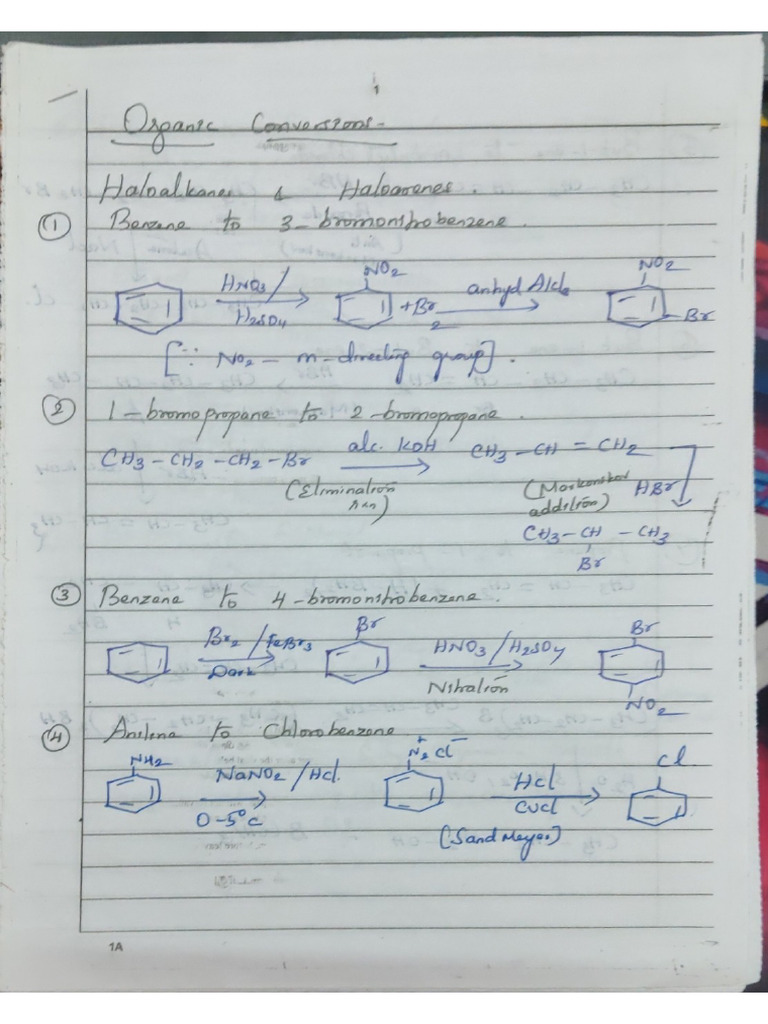 1
Organic Conversions-
Haloalkanes & Haloarenes.
① Benzene to 3-bromonitrobenzene.
HNO3/ H2SO4 NO2 + Br2 anhyd AlCl3 NO2 Br
[∵ NO2 - m-directing group].
② 1-bromopropane to 2-bromopropane.
CH3-CH2-CH2-Br alc. KOH CH3-CH=CH2
(Elimination rxn) (Markonikov addition) HBr
CH3-CH-CH3
Br
③ Benzene to 4-bromonitrobenzene.
Br2/FeBr3 Dark Br HNO3/H2SO4 Nitration Br NO2
④ Aniline to Chlorobenzene
NH2 NaNO2/HCl. 0-5°C N2+Cl- HCl CuCl Cl
(SandMeyer)
1A